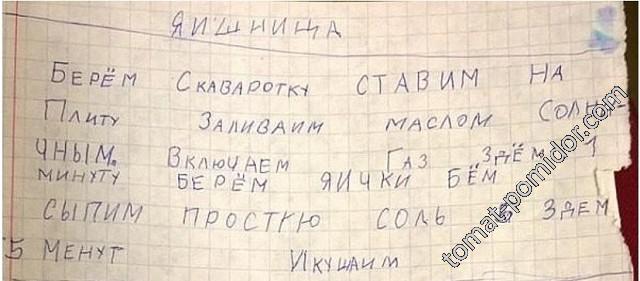 ЯИШНИЦА
БЕРЁМ СКАВАРОТКУ СТАВИМ НА
ПЛИТУ ЗАЛИВАИМ МАСЛОМ СОЛНЫ-
ЧНЫМ. ВКЛЮЧАЕМ ГАЗ ЗДЁМ 1
МИНУТУ БЕРЁМ ЯИЧКИ БЁМ
СЫПИМ ПРОСТУЮ СОЛЬ ЗДЕМ
5 МЕНУТ ИКУШАИМ
tomatpomidor.com